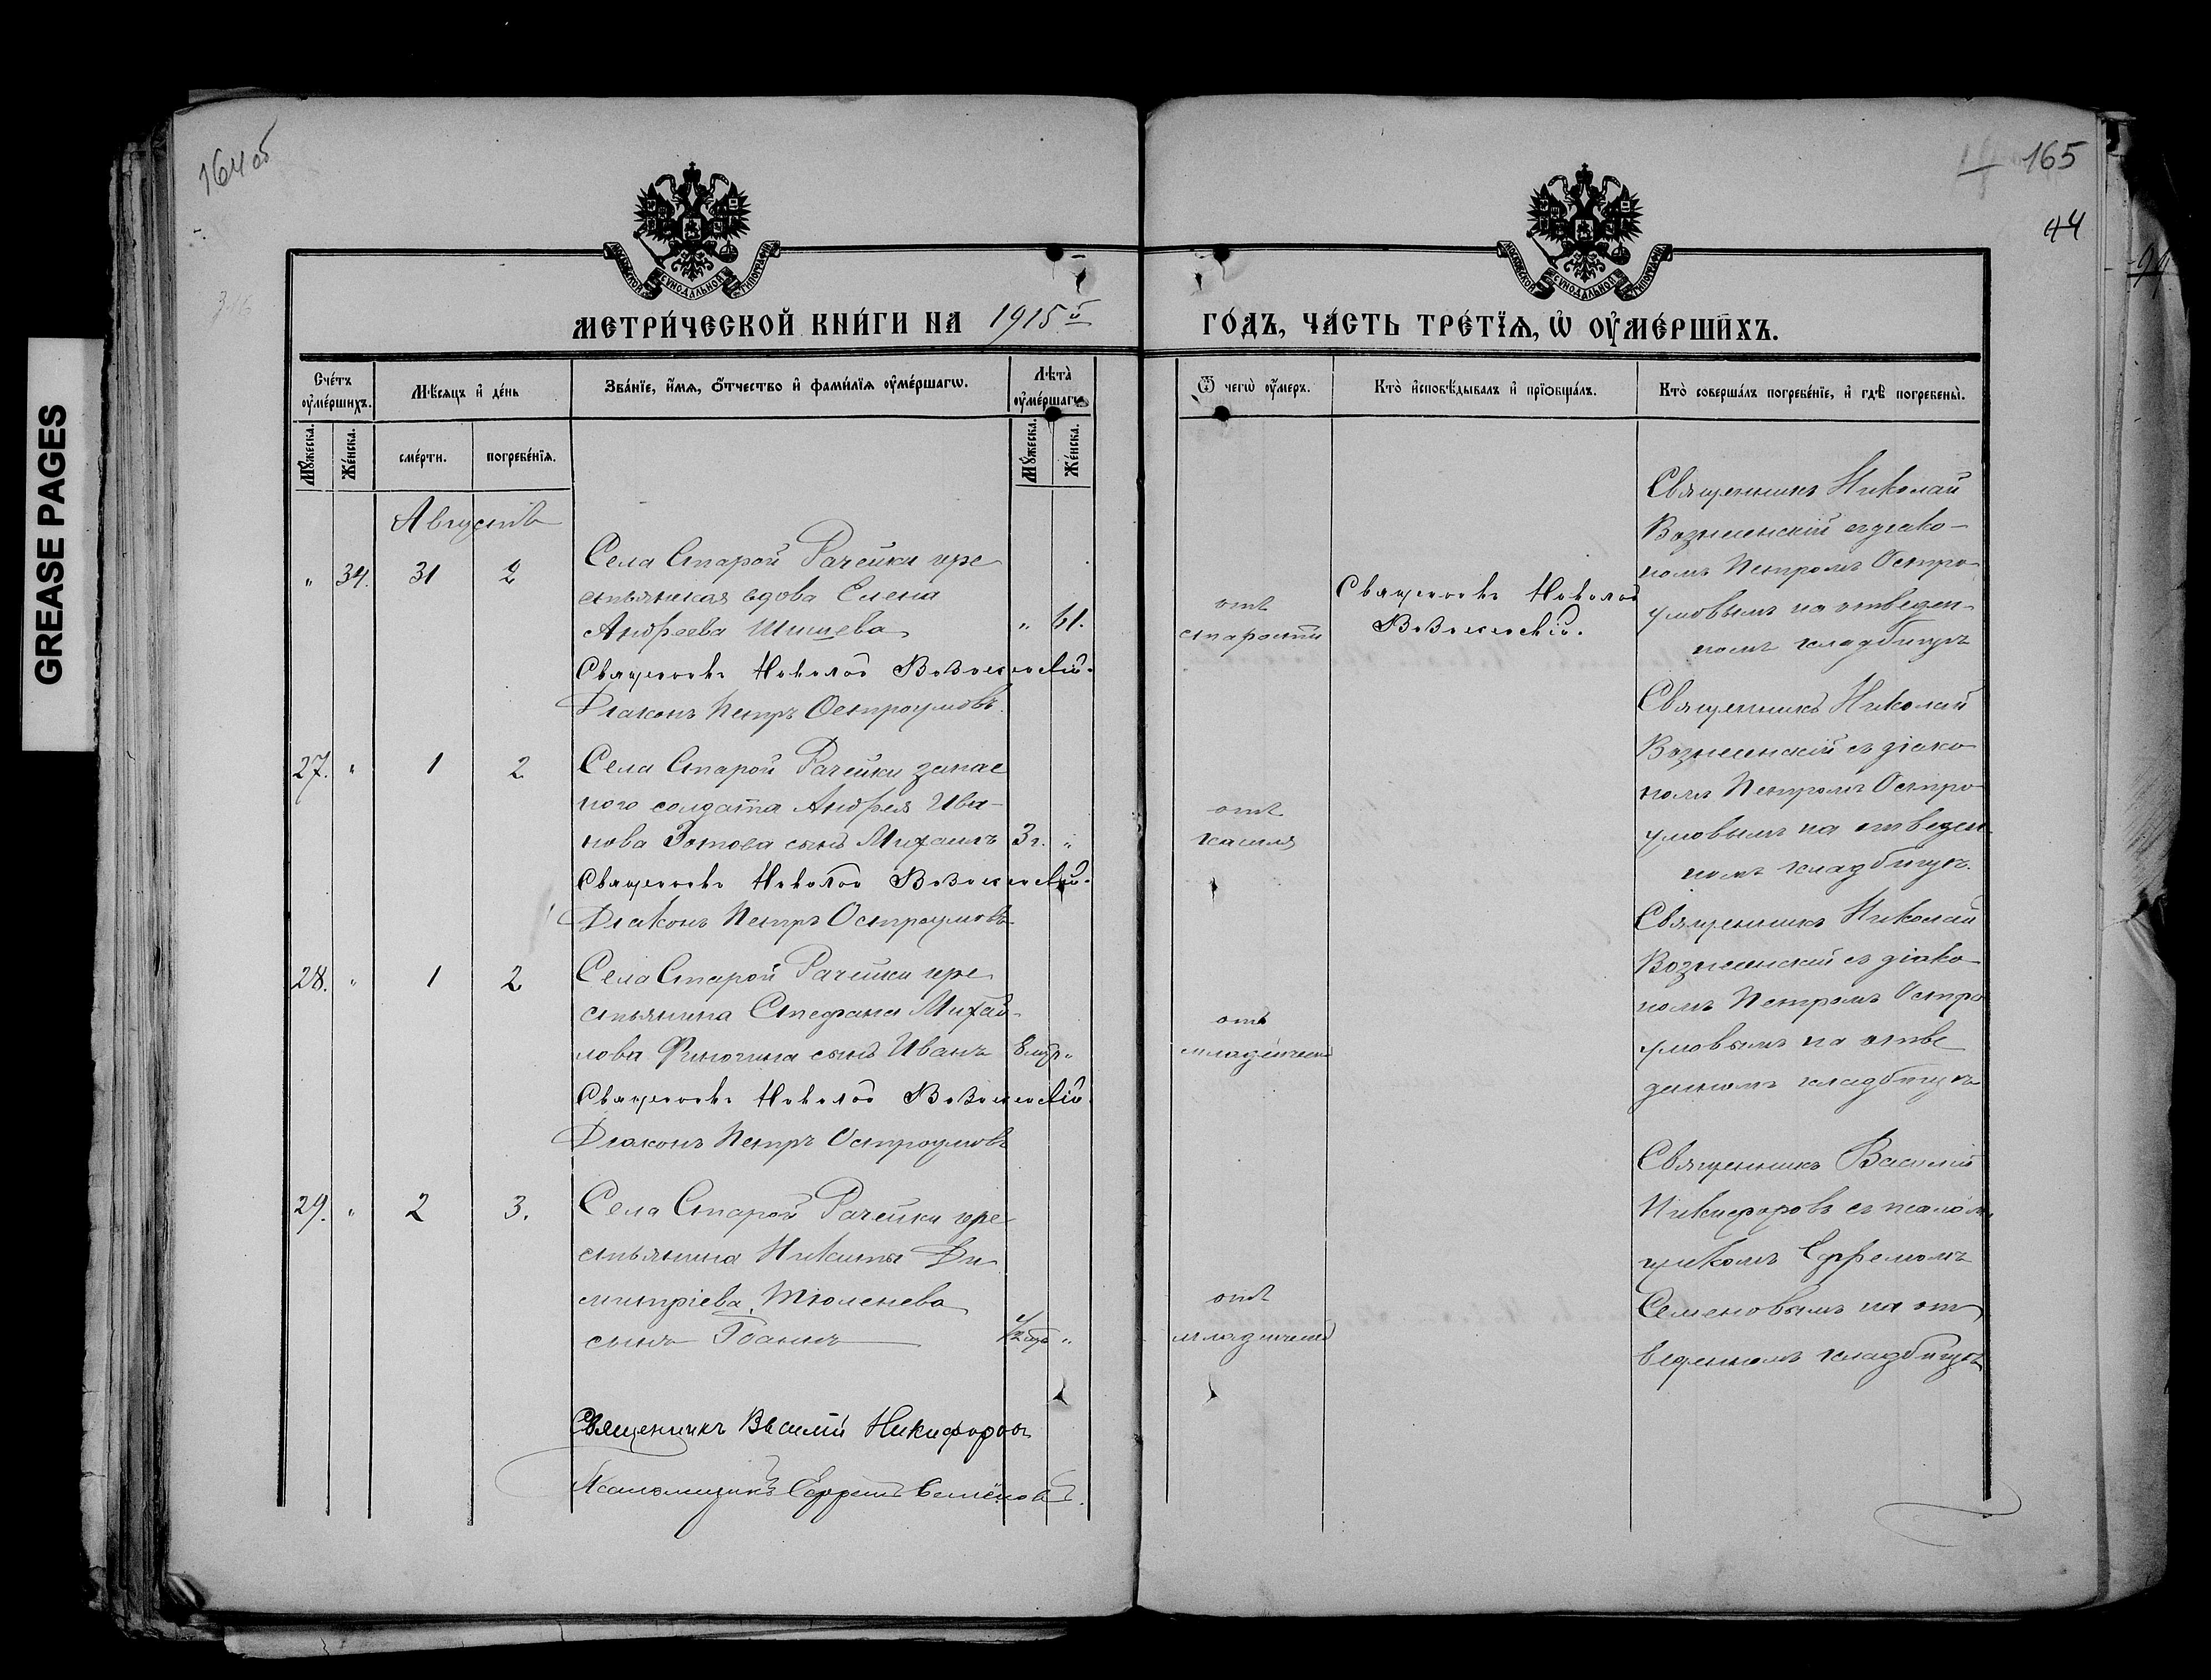 GREASE PAGES
164 об
165
44
МОСКОВСКОЙ СѴНОДАЛЬНОЙ ТИПОГРАФІИ
МОСКОВСКОЙ СѴНОДАЛЬНОЙ ТИПОГРАФІИ
МЕТРИ́ЧЕСКОЙ КНИ́ГИ НА 1915й
ГО́ДЪ, ЧА́СТЬ ТРЕ́ТЇѦ, Ѡ҆ ОУ҆МЕ́РШИХЪ.
Сче́тъ оу҆ме́ршихъ.
Мѣ́сяцъ и҆ де́нь
Зва́нїе, и҆́мя, ѻ҆́тчество и҆ фами́лїя оу҆ме́ршагѡ.
Лѣта̀ оу҆ме́ршагѡ.
Мꙋ́жеска.
Же́нска.
сме́рти.
погребе́нїя.
Мꙋ́жеска.
Же́нска.
Ѿ чегѡ̀ оу҆́меръ.
Кто̀ и҆сповѣ́дывалъ и҆ прїѻбща́лъ.
Кто̀ соверша́лъ погребе́нїе, и҆ гдѣ̀ погребены̀.
Августъ
" 34. 31 2
Села Старой Рачейки кре
стьянская вдова Елена
Андреева Шишева " 61.
Священникъ Николай Вознесенскій.
Діаконъ Петръ Остроумовъ.
отъ
старости
Священникъ Николай
Вознесенскій.
Священникъ Николай
Вознесенскій съ діако-
номъ Петромъ Остро-
умовымъ на отведен-
номъ кладбищѣ
27. " 1 2
Села Старой Рачейки запас
ного солдата Андрея Ива-
нова Зотова сынъ Михаилъ 3г. "
Священникъ Николай Вознесенскій.
Діаконъ Петръ Остроумовъ
отъ
кашля
Священникъ Николай
Вознесенскій съ діако
номъ Петромъ Остро
умовымъ на отведен
номъ кладбищѣ.
28. " 1 2
Села Старой Рачейки кре
стьянина Стефана Михай-
лова сынъ Иванъ "
Священникъ Николай Вознесенскій.
Діаконъ Петръ Остроумовъ
отъ
Священникъ Николай
Вознесенскій съ діако
номъ Петромъ Остро
умовымъ на отве
денномъ кладбищѣ
29. " 2 3.
Села Старой Рачейки кре
стьянина Никиты Ди
митріева Тюленева
сынъ Іоаннъ "
Священникъ Василій Никифоровъ
Псаломщикъ Ефремъ Семёновъ.
отъ
Священникъ Василій
Никифоровъ съ псалом
щикомъ Ефремомъ
Семеновымъ на от
веденномъ кладбищѣ